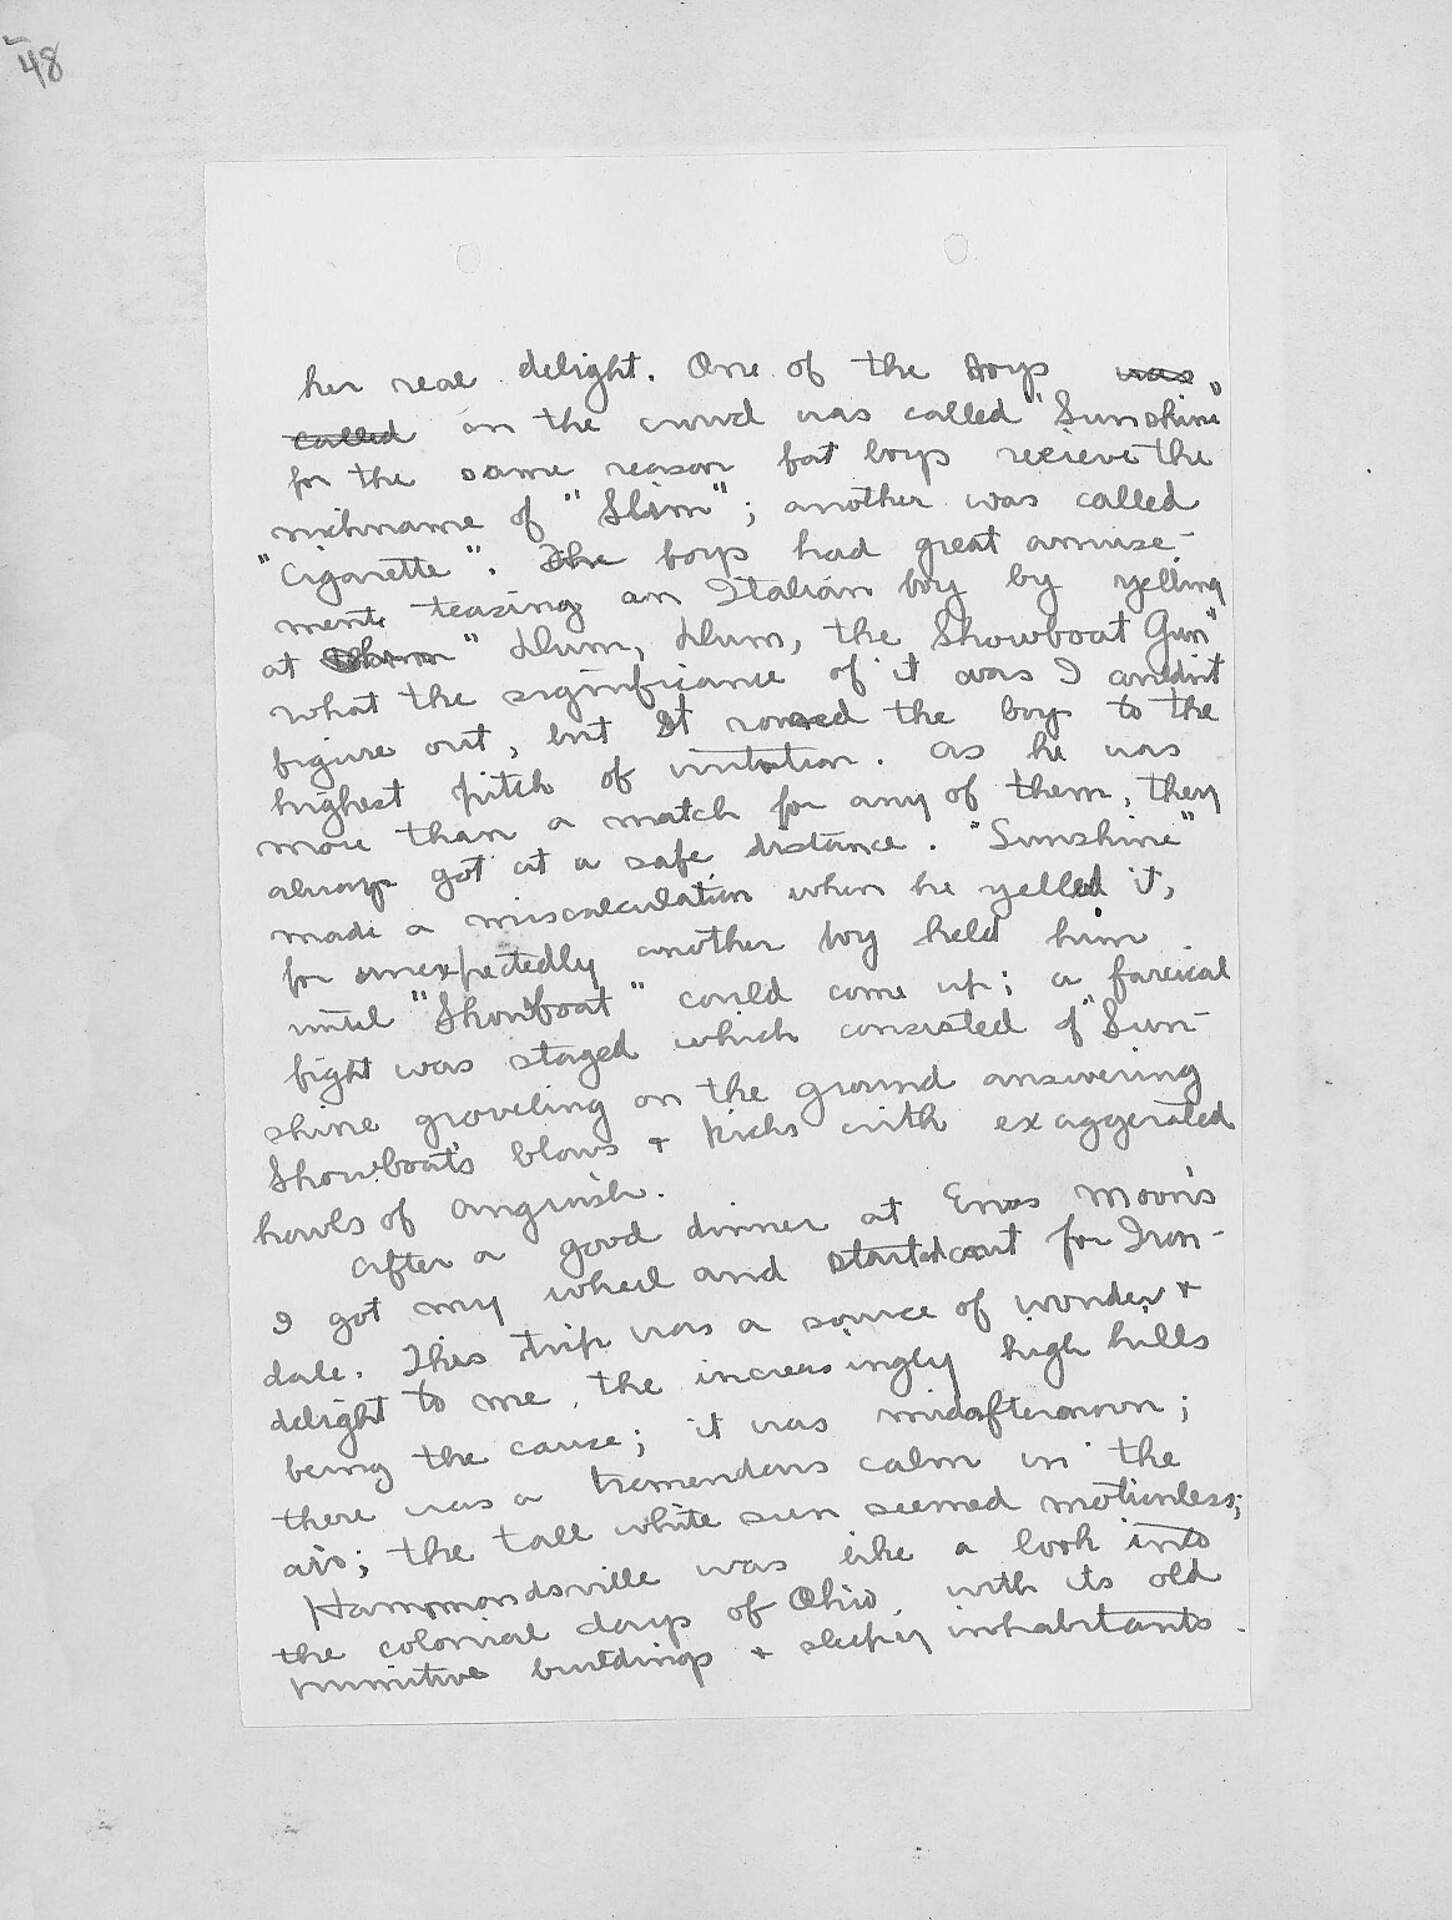 48
her real delight. One of the boys was
called in the crowd was called "Sunshine"
for the same reason fat boys recieve the
nickname of "Slim"; another was called
"Cigarette". The boys had great amuse-
ment teasing an Italian boy by yelling
at "Slum, Slum, the Showboat Gun"
what the significance of it was I couldn't
figure out, but it roused the boy to the
highest pitch of irritation. As he was
more than a match for any of them, they
always got at a safe distance. "Sunshine"
made a miscalculation when he yelled it,
for unexpectedly another boy held him
until "Showboat" could come up; a farcical
fight was staged which consisted of "Sun-
shine groveling on the ground answering
Showboat's blows + kicks with exaggerated
howls of anguish.
After a good dinner at Enos Moon's
I got my wheel and started out for Iron-
dale. This trip was a source of wonder +
delight to me, the increasingly high hills
being the cause; it was midafternoon;
there was a tremendous calm in the
air; the tall white sun seemed motionless;
Hammondsville was like a look into
the colonial days of Ohio, with its old
primitive buildings + sleepy inhabitants.